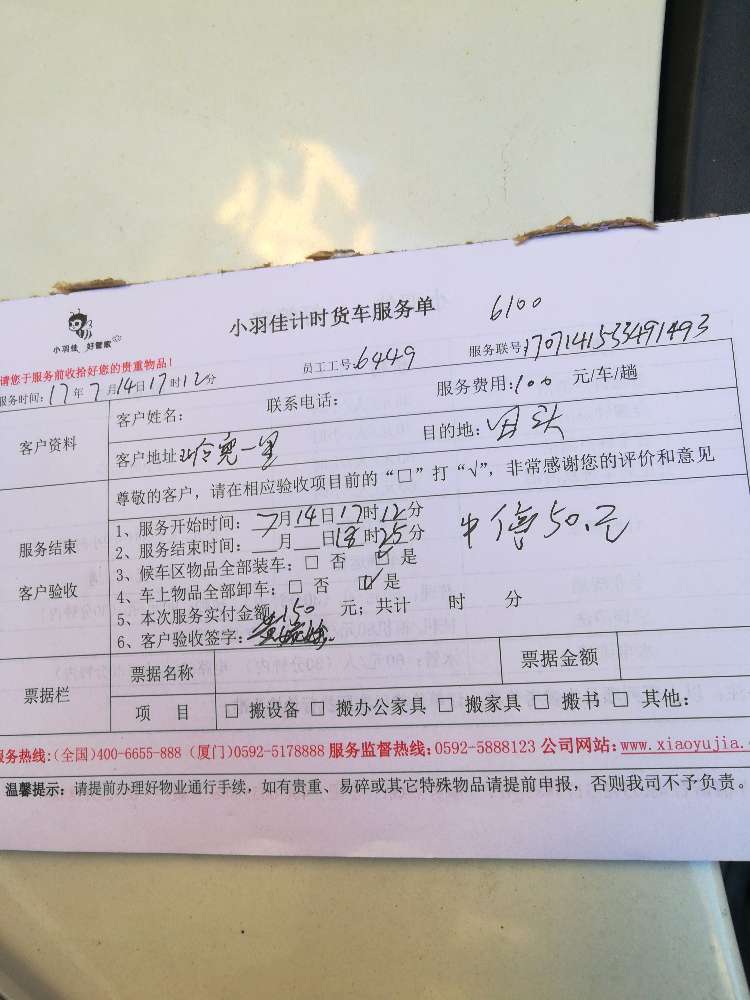 小羽佳计时货车服务单 6100
小羽佳 好管家
请您于服务前收拾好您的贵重物品！ 员工工号:6449 服务联号:170714153349​1493
服务时间: 17年7月14日17时12分
客户资料 客户姓名: 联系电话: 服务费用:100 元/车/趟
客户地址: 一里 目的地:
服务结束 客户验收
尊敬的客户，请在相应验收项目前的“□”打“√”，非常感谢您的评价和意见
1、服务开始时间: 7月14日17时12分 中停50元
2、服务结束时间: 月 日18时25分
3、候车区物品全部装车: □ 否 ☑ 是
4、车上物品全部卸车: □ 否 ☑ 是
5、本次服务实付金额:150 元; 共计 时 分
6、客户验收签字:
票据栏 票据名称 票据金额
项 目 □ 搬设备 □ 搬办公家具 □ 搬家具 □ 搬书 □ 其他:
服务热线:(全国)400-6655-888 (厦门)0592-5178888 服务监督热线:0592-5888123 公司网站:www.xiaoyujia.
温馨提示: 请提前办理好物业通行手续，如有贵重、易碎或其它特殊物品请提前申报，否则我司不予负责。